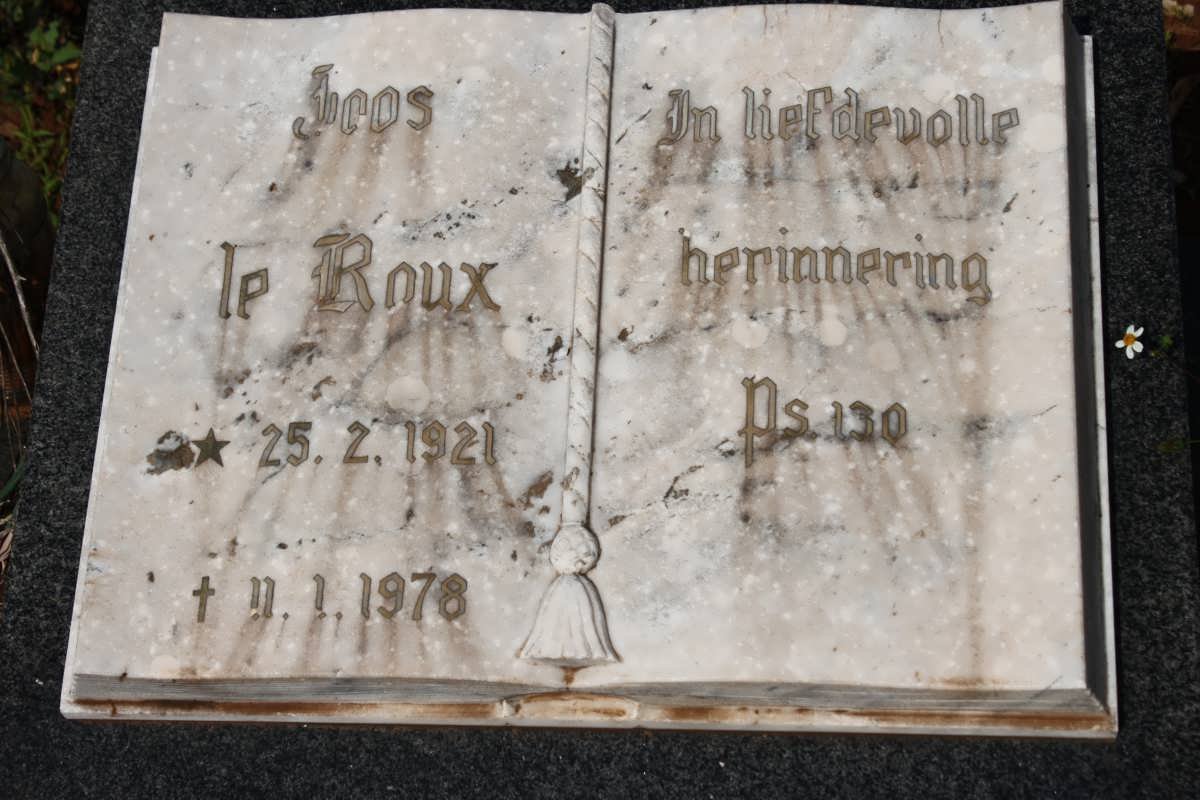 Joos
le Roux
★ 25. 2. 1921
† 11. 1. 1978
In liefdevolle
herinnering
Ps. 130